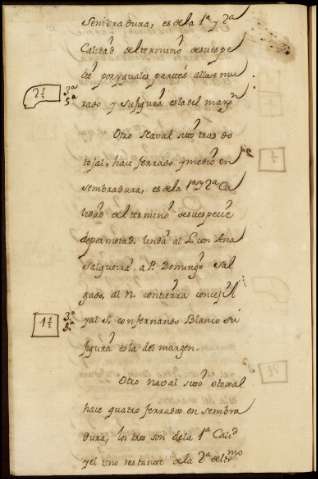 Sembradura, es de la 1ª y 2ª
Calidad del termino de su espe
cie por yguales partes allase mu
rado y su figura es la del margⁿ
2½ 3ª 5ª
Otro Naval sito tras do
tojal, hace ferrado y medio en
sembradura, es de la 1ª y 2ª Ca
lidad del termino de su especie
de por mitad. linda al L. con Ana
Salgueira a P. Domingo Sal
gado, al N. con tierra concejil
y al S. con fernando Blanco Su
figura es la del margen.
1½ 3ª 5ª
Otro naval sito
hace quatro ferrados en sembra
dura, los tres son de la 1ª Calid
y el uno restante de la 2ª del tmo